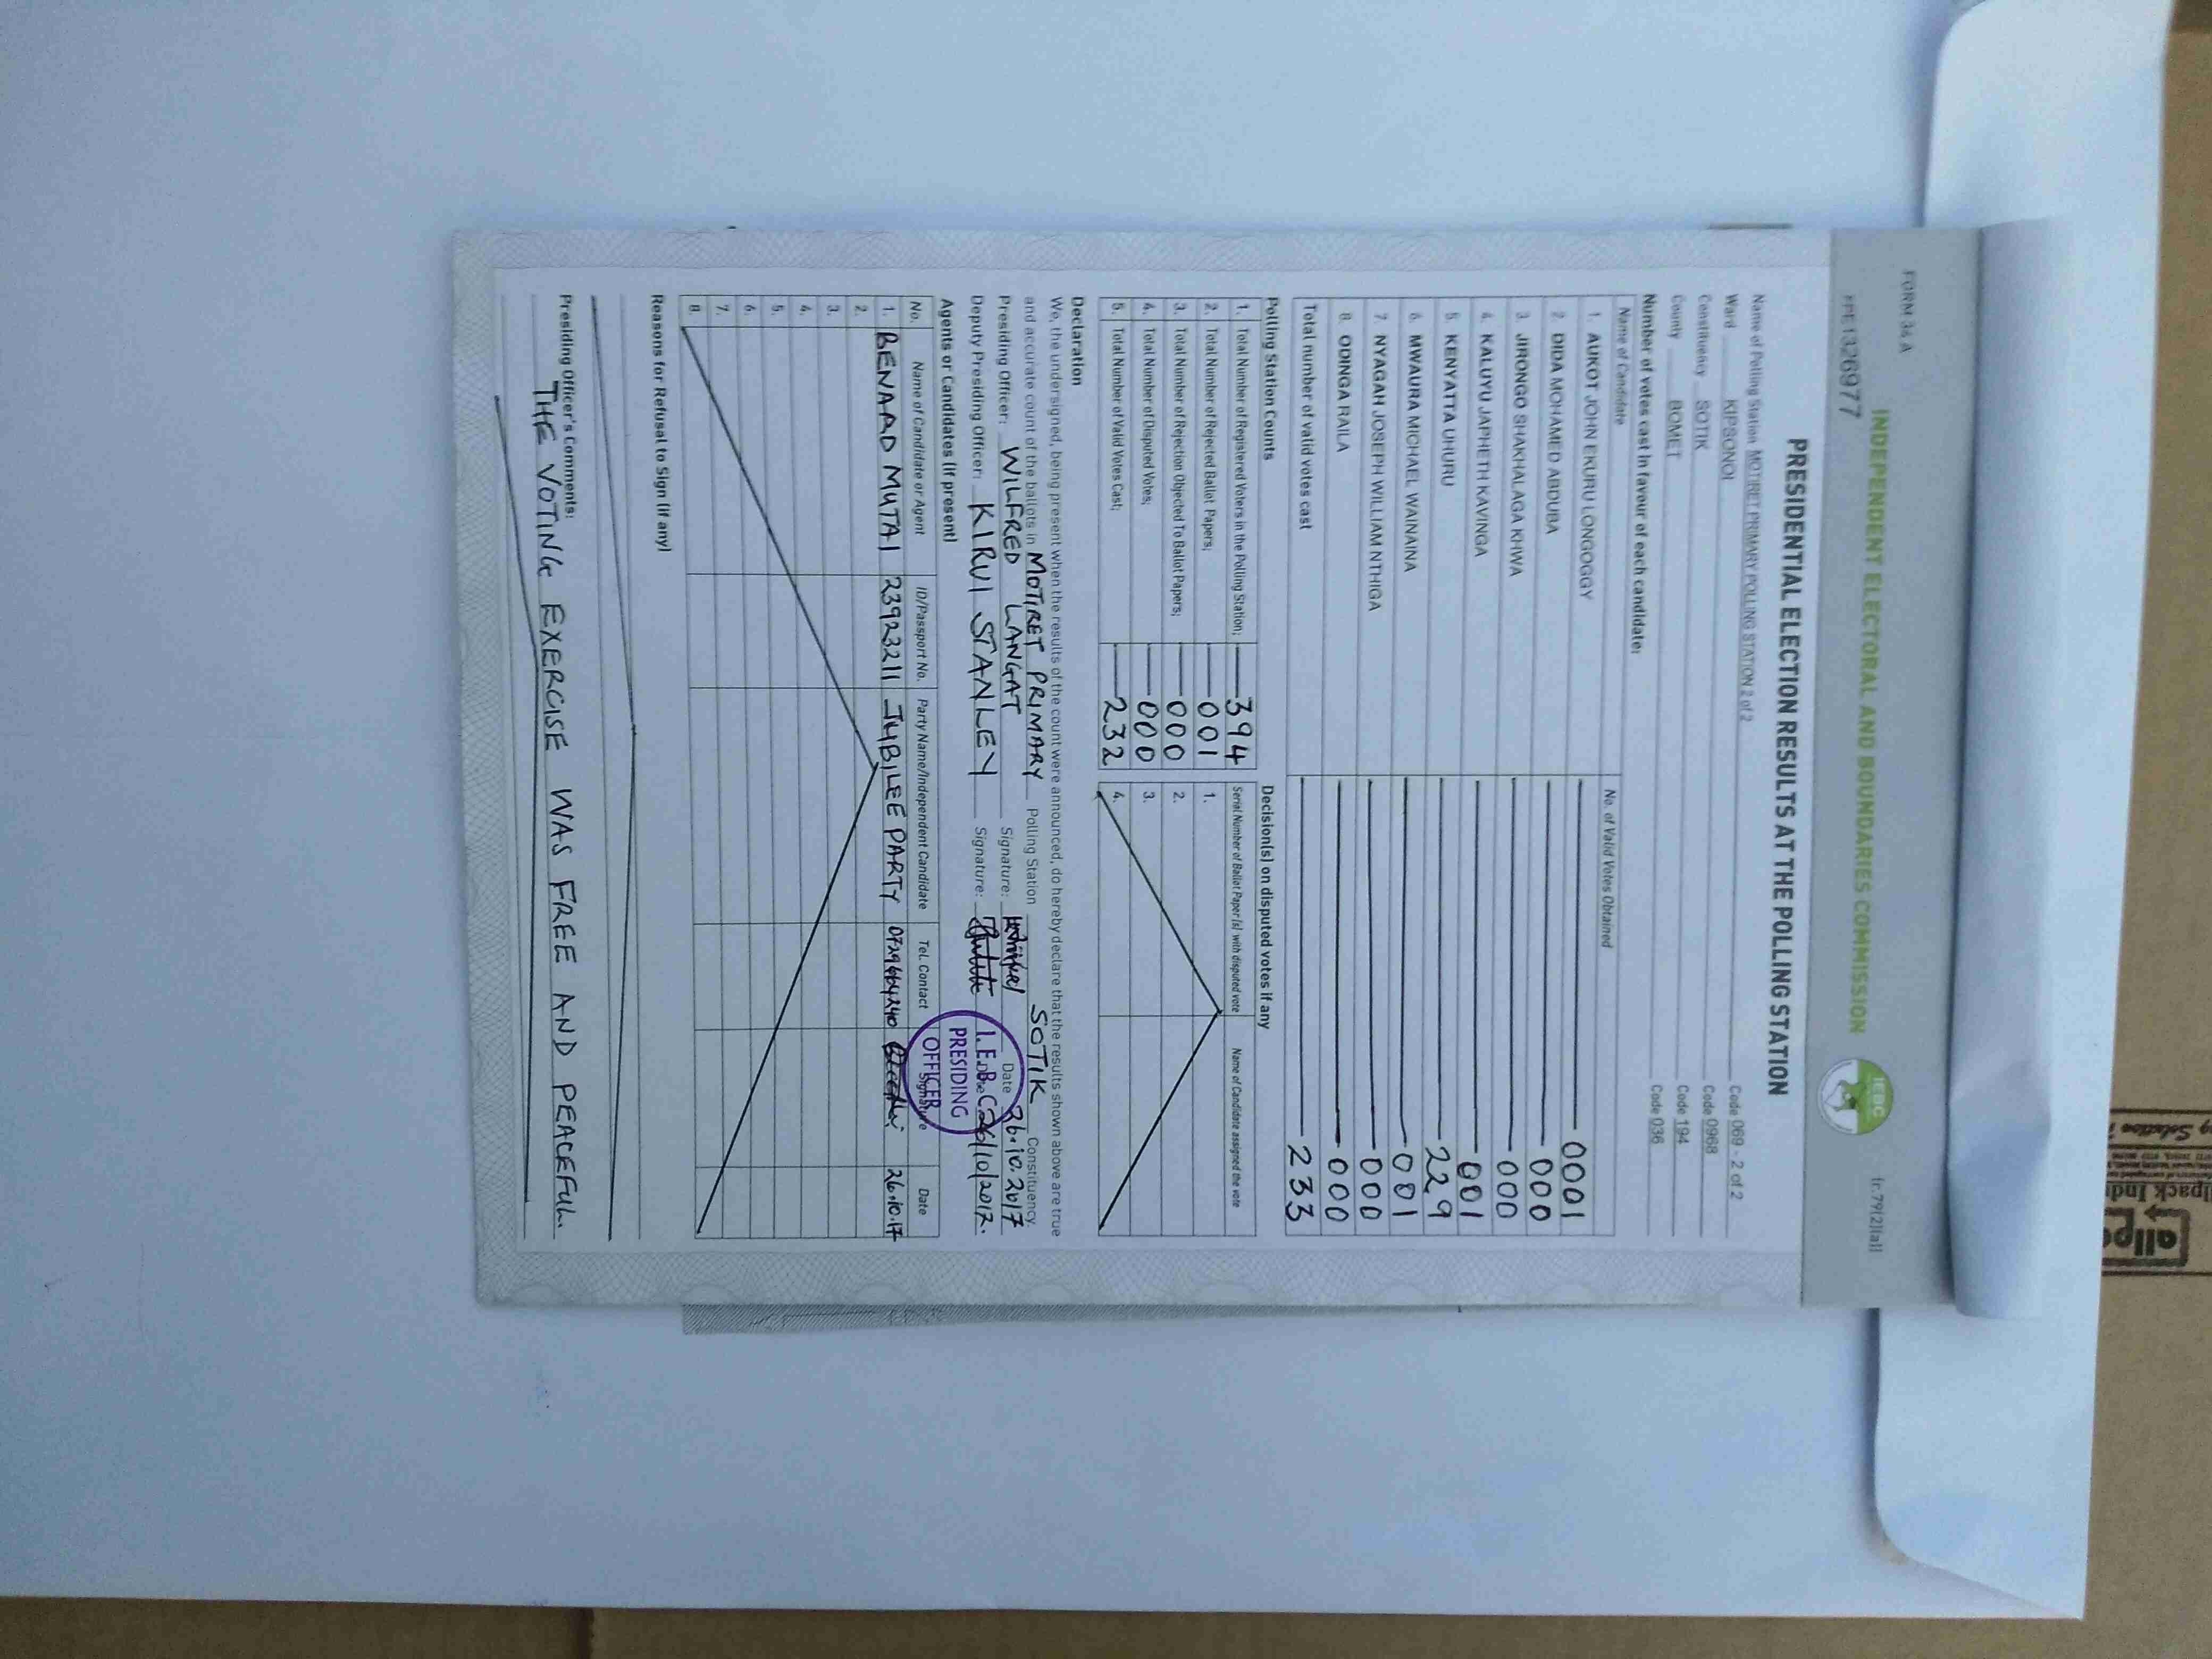 FORM 34 A
INDEPENDENT ELECTORAL AND BOUNDARIES COMMISSION
IEBC
(r.79(2)(a))
PRE1326977
PRESIDENTIAL ELECTION RESULTS AT THE POLLING STATION
Name of Polling Station MOTIRET PRIMARY POLLING STATION 2 of 2
Ward KIPSONOI Code 069 - 2 of 2
Constituency SOTIK Code 0968
County BOMET Code 194
Code 036
Number of votes cast in favour of each candidate:
Name of Candidate No. of Valid Votes Obtained
1. AUKOT JOHN EKURU LONGOGGY 0001
2. DIDA MOHAMED ABDUBA 000
3. JIRONGO SHAKHALAGA KHWA 000
4. KALUYU JAPHETH KAVINGA 001
5. KENYATTA UHURU 229
6. MWAURA MICHAEL WAINAINA 001
7. NYAGAH JOSEPH WILLIAM NTHIGA 000
8. ODINGA RAILA 000
Total number of valid votes cast 233
Polling Station Counts Decision(s) on disputed votes if any
1. Total Number of Registered Voters in the Polling Station; 394 Serial Number of Ballot Paper (s) with disputed vote Name of Candidate assigned the vote
2. Total Number of Rejected Ballot Papers; 001 1.
3. Total Number of Rejection Objected To Ballot Papers; 000 2.
4. Total Number of Disputed Votes; 000 3.
5. Total Number of Valid Votes Cast; 232 4.
Declaration
We, the undersigned, being present when the results of the count were announced, do hereby declare that the results shown above are true
and accurate count of the ballots in MOTIRET PRIMARY Polling Station SOTIK Constituency.
Presiding Officer: WILFRED LANGAT Signature: Date 26.10.2017
Deputy Presiding Officer: KIRUI STANLEY Signature: 26/10/2017.
I.E.B.C
PRESIDING
OFFICER
Agents or Candidates (if present)
No. Name of Candidate or Agent ID/Passport No. Party Name/Independent Candidate Tel. Contact Signature Date
1. BENARD MUTAI 23923211 JUBILEE PARTY 0729664240 26.10.17
2.
3.
4.
5.
6.
7.
8.
Reasons for Refusal to Sign (if any)
Presiding Officer's Comments:
THE VOTING EXERCISE WAS FREE AND PEACEFUL.